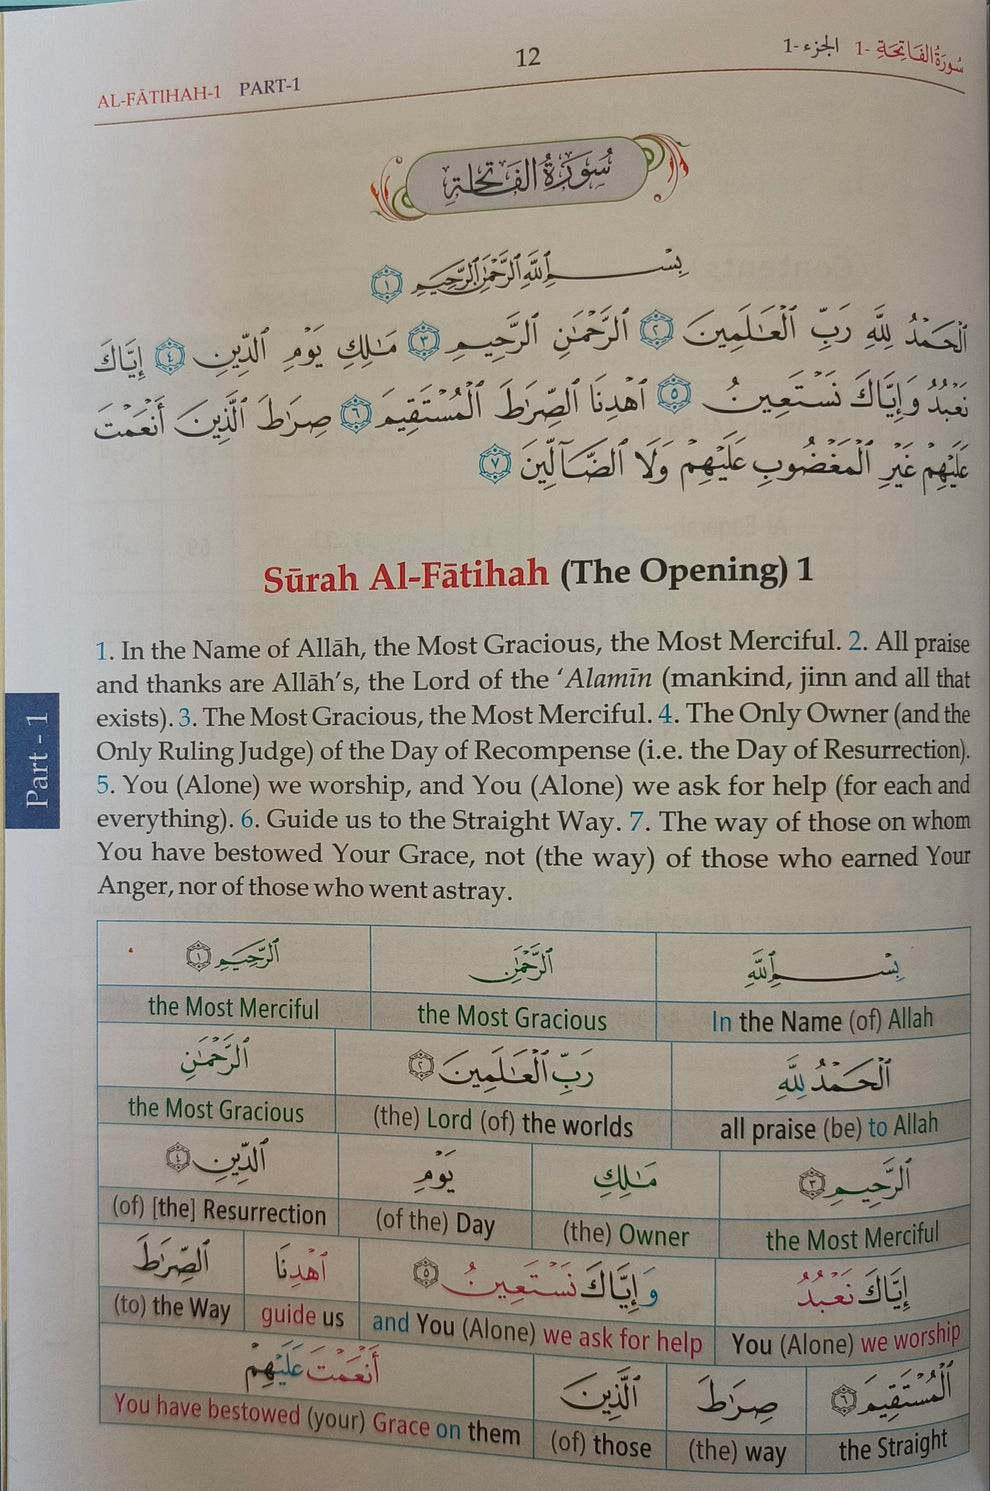 AL-FĀTIHAH-1 PART-1
12
الجزء -1 سُورَةُ الفَاتِحَةِ -1
سُورَةُ الفَاتِحَةِ
بِسْمِ ٱللَّهِ ٱلرَّحْمَٰنِ ٱلرَّحِيمِ ١
ٱلْحَمْدُ لِلَّهِ رَبِّ ٱلْعَٰلَمِينَ ٢ ٱلرَّحْمَٰنِ ٱلرَّحِيمِ ٣ مَٰلِكِ يَوْمِ ٱلدِّينِ ٤ إِيَّاكَ
نَعْبُدُ وَإِيَّاكَ نَسْتَعِينُ ٥ ٱهْدِنَا ٱلصِّرَٰطَ ٱلْمُسْتَقِيمَ ٦ صِرَٰطَ ٱلَّذِينَ أَنْعَمْتَ
عَلَيْهِمْ غَيْرِ ٱلْمَغْضُوبِ عَلَيْهِمْ وَلَا ٱلضَّآلِّينَ ٧
Sūrah Al-Fātihah (The Opening) 1
1. In the Name of Allāh, the Most Gracious, the Most Merciful. 2. All praise
and thanks are Allāh's, the Lord of the ‘Alamīn (mankind, jinn and all that
exists). 3. The Most Gracious, the Most Merciful. 4. The Only Owner (and the
Only Ruling Judge) of the Day of Recompense (i.e. the Day of Resurrection).
5. You (Alone) we worship, and You (Alone) we ask for help (for each and
everything). 6. Guide us to the Straight Way. 7. The way of those on whom
You have bestowed Your Grace, not (the way) of those who earned Your
Anger, nor of those who went astray.
Part - 1
بِسْمِ ٱللَّهِ ٱلرَّحْمَٰنِ ٱلرَّحِيمِ ١
In the Name (of) Allah the Most Gracious the Most Merciful
ٱلْحَمْدُ لِلَّهِ رَبِّ ٱلْعَٰلَمِينَ ٢ ٱلرَّحْمَٰنِ
all praise (be) to Allah (the) Lord (of) the worlds the Most Gracious
ٱلرَّحِيمِ ٣ مَٰلِكِ يَوْمِ ٱلدِّينِ ٤
the Most Merciful (the) Owner (of the) Day (of) [the] Resurrection
إِيَّاكَ نَعْبُدُ وَإِيَّاكَ نَسْتَعِينُ ٥ ٱهْدِنَا ٱلصِّرَٰطَ
You (Alone) we worship and You (Alone) we ask for help guide us (to) the Way
ٱلْمُسْتَقِيمَ ٦ صِرَٰطَ ٱلَّذِينَ أَنْعَمْتَ عَلَيْهِمْ
the Straight (the) way (of) those You have bestowed (your) Grace on them